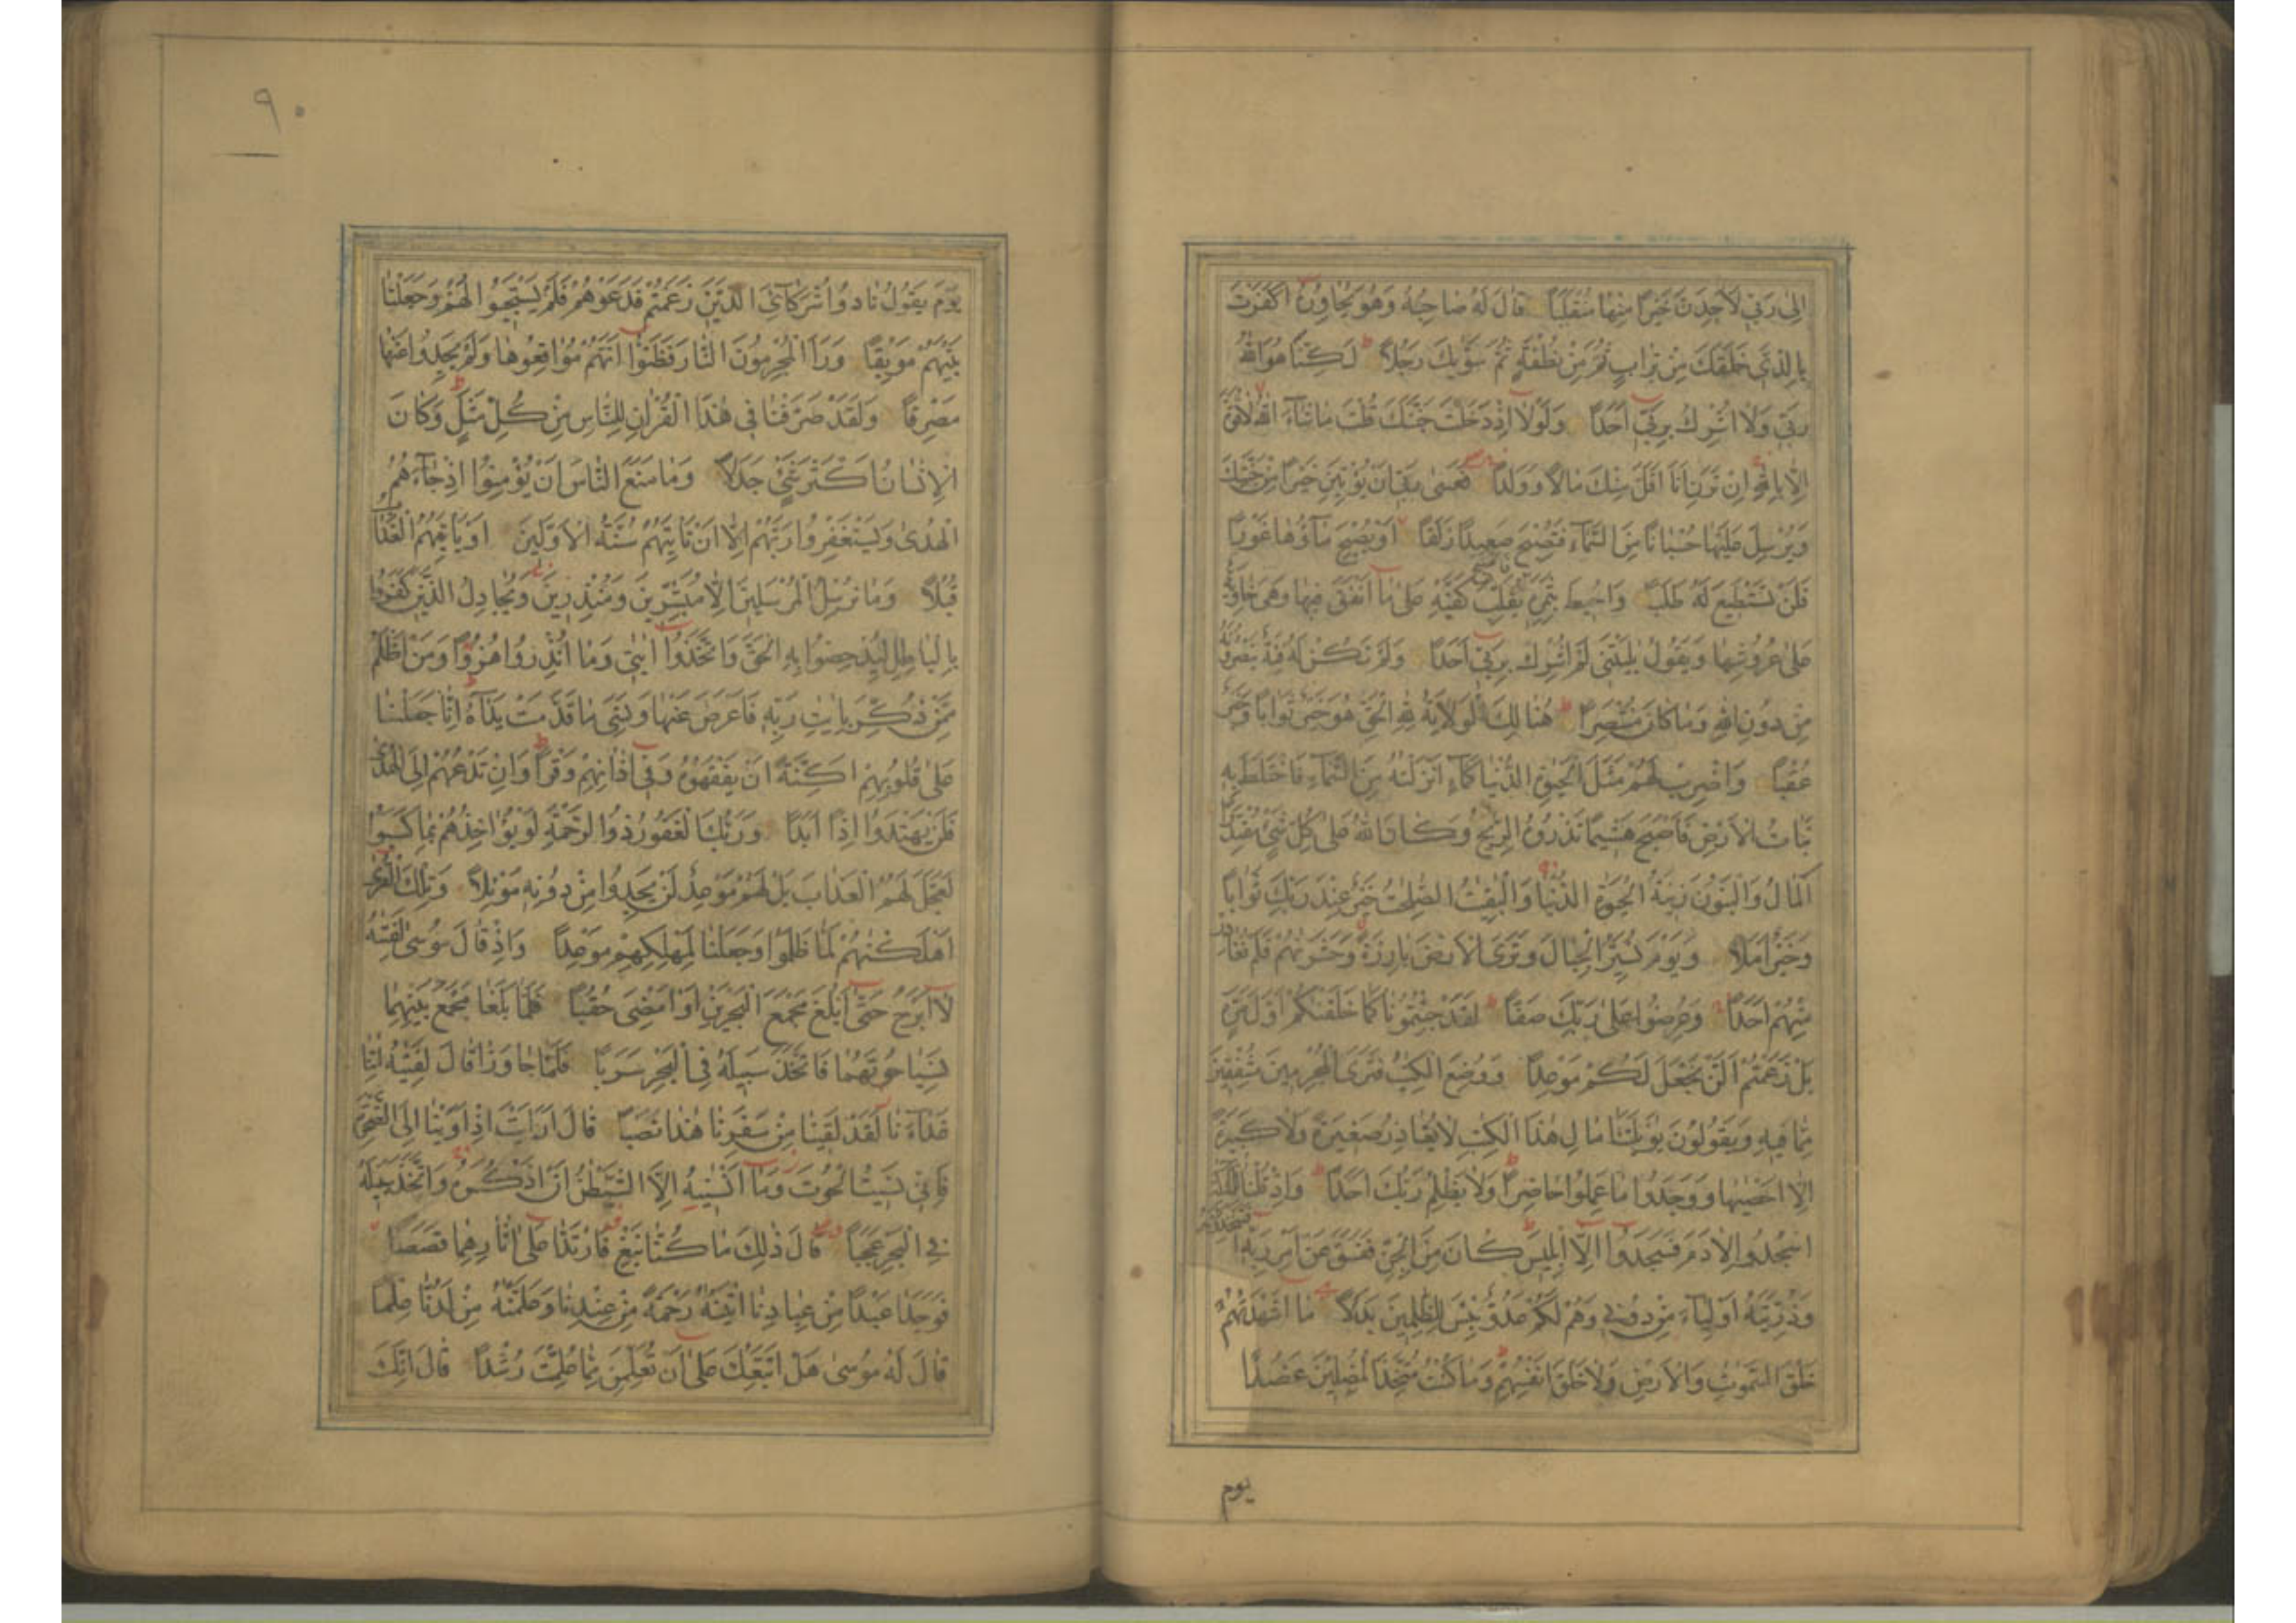 إِلَىٰ رَبِّي لَأَجِدَنَّ خَيْرًا مِنْهَا مُنْقَلَبًا قَالَ لَهُ صَاحِبُهُ وَهُوَ يُحَاوِرُهُ أَكَفَرْتَ
بِالَّذِي خَلَقَكَ مِنْ تُرَابٍ ثُمَّ مِنْ نُطْفَةٍ ثُمَّ سَوّٰيكَ رَجُلًا لَكِنَّا هُوَ اللهُ
رَبِّي وَلَا أُشْرِكُ بِرَبِّي أَحَدًا وَلَوْلَا إِذْ دَخَلْتَ جَنَّتَكَ قُلْتَ مَا شَاءَ اللهُ لَا قُوَّةَ
إِلَّا بِاللهِ إِنْ تَرَنِ أَنَا أَقَلَّ مِنْكَ مَالًا وَوَلَدًا فَعَسَىٰ رَبِّي أَنْ يُؤْتِيَنِ خَيْرًا مِنْ جَنَّتِكَ
وَيُرْسِلَ عَلَيْهَا حُسْبَانًا مِنَ السَّمَاءِ فَتُصْبِحَ صَعِيدًا زَلَقًا أَوْ يُصْبِحَ مَاؤُهَا غَوْرًا
فَلَنْ تَسْتَطِيعَ لَهُ طَلَبًا وَأُحِيطَ بِثَمَرِهِ فَأَصْبَحَ يُقَلِّبُ كَفَّيْهِ عَلَىٰ مَا أَنْفَقَ فِيهَا وَهِيَ خَاوِيَةٌ
عَلَىٰ عُرُوشِهَا وَيَقُولُ يٰلَيْتَنِي لَمْ أُشْرِكْ بِرَبِّي أَحَدًا وَلَمْ تَكُنْ لَهُ فِئَةٌ يَنْصُرُونَهُ
مِنْ دُونِ اللهِ وَمَا كَانَ مُنْتَصِرًا هُنَالِكَ الْوَلَايَةُ لِلّٰهِ الْحَقِّ هُوَ خَيْرٌ ثَوَابًا وَخَيْرٌ
عُقْبًا وَاضْرِبْ لَهُمْ مَثَلَ الْحَيٰوةِ الدُّنْيَا كَمَاءٍ أَنْزَلْنٰهُ مِنَ السَّمَاءِ فَاخْتَلَطَ بِهِ
نَبَاتُ الْأَرْضِ فَأَصْبَحَ هَشِيمًا تَذْرُوهُ الرِّيٰحُ وَكَانَ اللهُ عَلَىٰ كُلِّ شَيْءٍ مُقْتَدِرًا
اَلْمَالُ وَالْبَنُونَ زِينَةُ الْحَيٰوةِ الدُّنْيَا وَالْبٰقِيٰتُ الصّٰلِحٰتُ خَيْرٌ عِنْدَ رَبِّكَ ثَوَابًا
وَخَيْرٌ أَمَلًا وَيَوْمَ نُسَيِّرُ الْجِبَالَ وَتَرَى الْأَرْضَ بَارِزَةً وَحَشَرْنٰهُمْ فَلَمْ نُغَادِرْ
مِنْهُمْ أَحَدًا وَعُرِضُوا عَلَىٰ رَبِّكَ صَفًّا لَقَدْ جِئْتُمُونَا كَمَا خَلَقْنٰكُمْ أَوَّلَ مَرَّةٍ
بَلْ زَعَمْتُمْ أَلَّنْ نَجْعَلَ لَكُمْ مَوْعِدًا وَوُضِعَ الْكِتٰبُ فَتَرَى الْمُجْرِمِينَ مُشْفِقِينَ
مِمَّا فِيهِ وَيَقُولُونَ يٰوَيْلَتَنَا مَالِ هٰذَا الْكِتٰبِ لَا يُغَادِرُ صَغِيرَةً وَلَا كَبِيرَةً
إِلَّا أَحْصٰيهَا وَوَجَدُوا مَا عَمِلُوا حَاضِرًا وَلَا يَظْلِمُ رَبُّكَ أَحَدًا وَإِذْ قُلْنَا لِلْمَلٰئِكَةِ
اسْجُدُوا لِآدَمَ فَسَجَدُوا إِلَّا إِبْلِيسَ كَانَ مِنَ الْجِنِّ فَفَسَقَ عَنْ أَمْرِ رَبِّهِ أَفَتَتَّخِذُونَهُ
وَذُرِّيَّتَهُ أَوْلِيَاءَ مِنْ دُونِي وَهُمْ لَكُمْ عَدُوٌّ بِئْسَ لِلظّٰلِمِينَ بَدَلًا مَا أَشْهَدْتُهُمْ
خَلْقَ السَّمٰوٰتِ وَالْأَرْضِ وَلَا خَلْقَ أَنْفُسِهِمْ وَمَا كُنْتُ مُتَّخِذَ الْمُضِلِّينَ عَضُدًا
يوم
٩٠
يَوْمَ يَقُولُ نَادُوا شُرَكَائِيَ الَّذِينَ زَعَمْتُمْ فَدَعَوْهُمْ فَلَمْ يَسْتَجِيبُوا لَهُمْ وَجَعَلْنَا
بَيْنَهُمْ مَوْبِقًا وَرَأَ الْمُجْرِمُونَ النَّارَ فَظَنُّوا أَنَّهُمْ مُوَاقِعُوهَا وَلَمْ يَجِدُوا عَنْهَا
مَصْرِفًا وَلَقَدْ صَرَّفْنَا فِي هٰذَا الْقُرْآنِ لِلنَّاسِ مِنْ كُلِّ مَثَلٍ وَكَانَ
الْإِنْسَانُ أَكْثَرَ شَيْءٍ جَدَلًا وَمَا مَنَعَ النَّاسَ أَنْ يُؤْمِنُوا إِذْ جَاءَهُمُ
الْهُدَىٰ وَيَسْتَغْفِرُوا رَبَّهُمْ إِلَّا أَنْ تَأْتِيَهُمْ سُنَّةُ الْأَوَّلِينَ أَوْ يَأْتِيَهُمُ الْعَذَابُ
قُبُلًا وَمَا نُرْسِلُ الْمُرْسَلِينَ إِلَّا مُبَشِّرِينَ وَمُنْذِرِينَ وَيُجَادِلُ الَّذِينَ كَفَرُوا
بِالْبَاطِلِ لِيُدْحِضُوا بِهِ الْحَقَّ وَاتَّخَذُوا آيٰتِي وَمَا أُنْذِرُوا هُزُوًا وَمَنْ أَظْلَمُ
مِمَّنْ ذُكِّرَ بِآيٰتِ رَبِّهِ فَأَعْرَضَ عَنْهَا وَنَسِيَ مَا قَدَّمَتْ يَدَاهُ إِنَّا جَعَلْنَا
عَلَىٰ قُلُوبِهِمْ أَكِنَّةً أَنْ يَفْقَهُوهُ وَفِي آذَانِهِمْ وَقْرًا وَإِنْ تَدْعُهُمْ إِلَى الْهُدَىٰ
فَلَنْ يَهْتَدُوا إِذًا أَبَدًا وَرَبُّكَ الْغَفُورُ ذُو الرَّحْمَةِ لَوْ يُؤَاخِذُهُمْ بِمَا كَسَبُوا
لَعَجَّلَ لَهُمُ الْعَذَابَ بَلْ لَهُمْ مَوْعِدٌ لَنْ يَجِدُوا مِنْ دُونِهِ مَوْئِلًا وَتِلْكَ الْقُرَىٰ
أَهْلَكْنٰهُمْ لَمَّا ظَلَمُوا وَجَعَلْنَا لِمَهْلِكِهِمْ مَوْعِدًا وَإِذْ قَالَ مُوسَىٰ لِفَتٰيهُ
لَا أَبْرَحُ حَتَّىٰ أَبْلُغَ مَجْمَعَ الْبَحْرَيْنِ أَوْ أَمْضِيَ حُقُبًا فَلَمَّا بَلَغَا مَجْمَعَ بَيْنِهِمَا
نَسِيَا حُوتَهُمَا فَاتَّخَذَ سَبِيلَهُ فِي الْبَحْرِ سَرَبًا فَلَمَّا جَاوَزَا قَالَ لِفَتٰيهُ آتِنَا
غَدَاءَنَا لَقَدْ لَقِينَا مِنْ سَفَرِنَا هٰذَا نَصَبًا قَالَ أَرَأَيْتَ إِذْ أَوَيْنَا إِلَى الصَّخْرَةِ
فَإِنِّي نَسِيتُ الْحُوتَ وَمَا أَنْسٰنِيهُ إِلَّا الشَّيْطٰنُ أَنْ أَذْكُرَهُ وَاتَّخَذَ سَبِيلَهُ
فِي الْبَحْرِ عَجَبًا قَالَ ذٰلِكَ مَا كُنَّا نَبْغِ فَارْتَدَّا عَلَىٰ آثَارِهِمَا قَصَصًا
فَوَجَدَا عَبْدًا مِنْ عِبَادِنَا آتَيْنٰهُ رَحْمَةً مِنْ عِنْدِنَا وَعَلَّمْنٰهُ مِنْ لَدُنَّا عِلْمًا
قَالَ لَهُ مُوسَىٰ هَلْ أَتَّبِعُكَ عَلَىٰ أَنْ تُعَلِّمَنِ مِمَّا عُلِّمْتَ رُشْدًا قَالَ إِنَّكَ